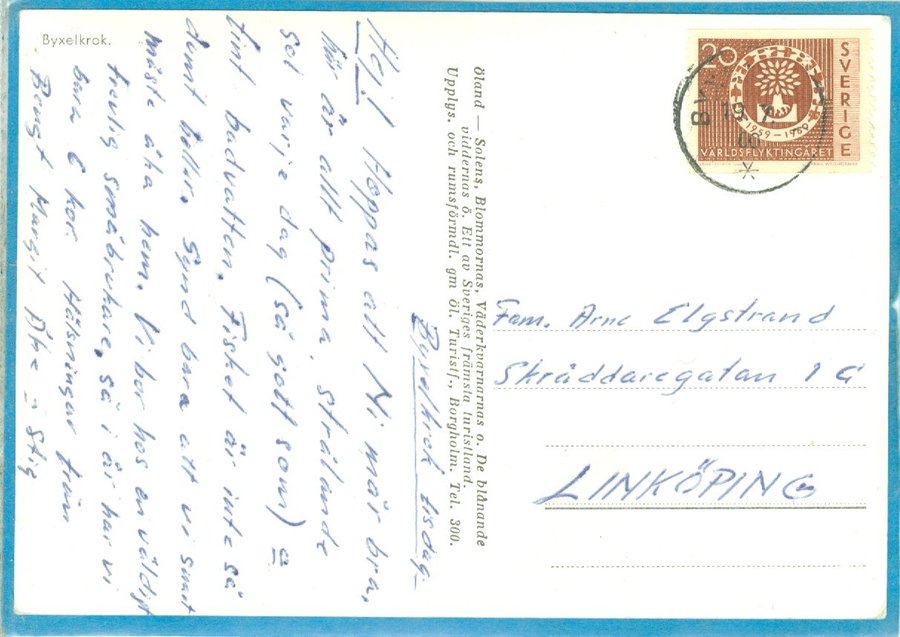 Byxelkrok.
Byxelkrok tisdag.
Hej! Hoppas att Ni mår bra,
här är allt prima, strålande
sol varje dag (så gott som) o
fint badvatten. Fisket är inte så
dumt heller. Synd bara att vi snart
måste åka hem. Vi bor hos en väldigt
trevlig småbrukare, så i år har vi
bara 6 kor. Hälsningar från
Bengt Margit Åke o Stig
Öland — Solens, Blommornas, Väderkvarnarnas o. De blånande
viddernas ö. Ett av Sveriges främsta turistland.
Upplys. och rumsförmdl. gm öl. Turistf., Borgholm. Tel. 300.
20
SVERIGE
1959-1960
VÄRLDSFLYKTINGÅRET
19. 7.
60
Fam. Arne Elgstrand
Skräddaregatan 1 G
LINKÖPING